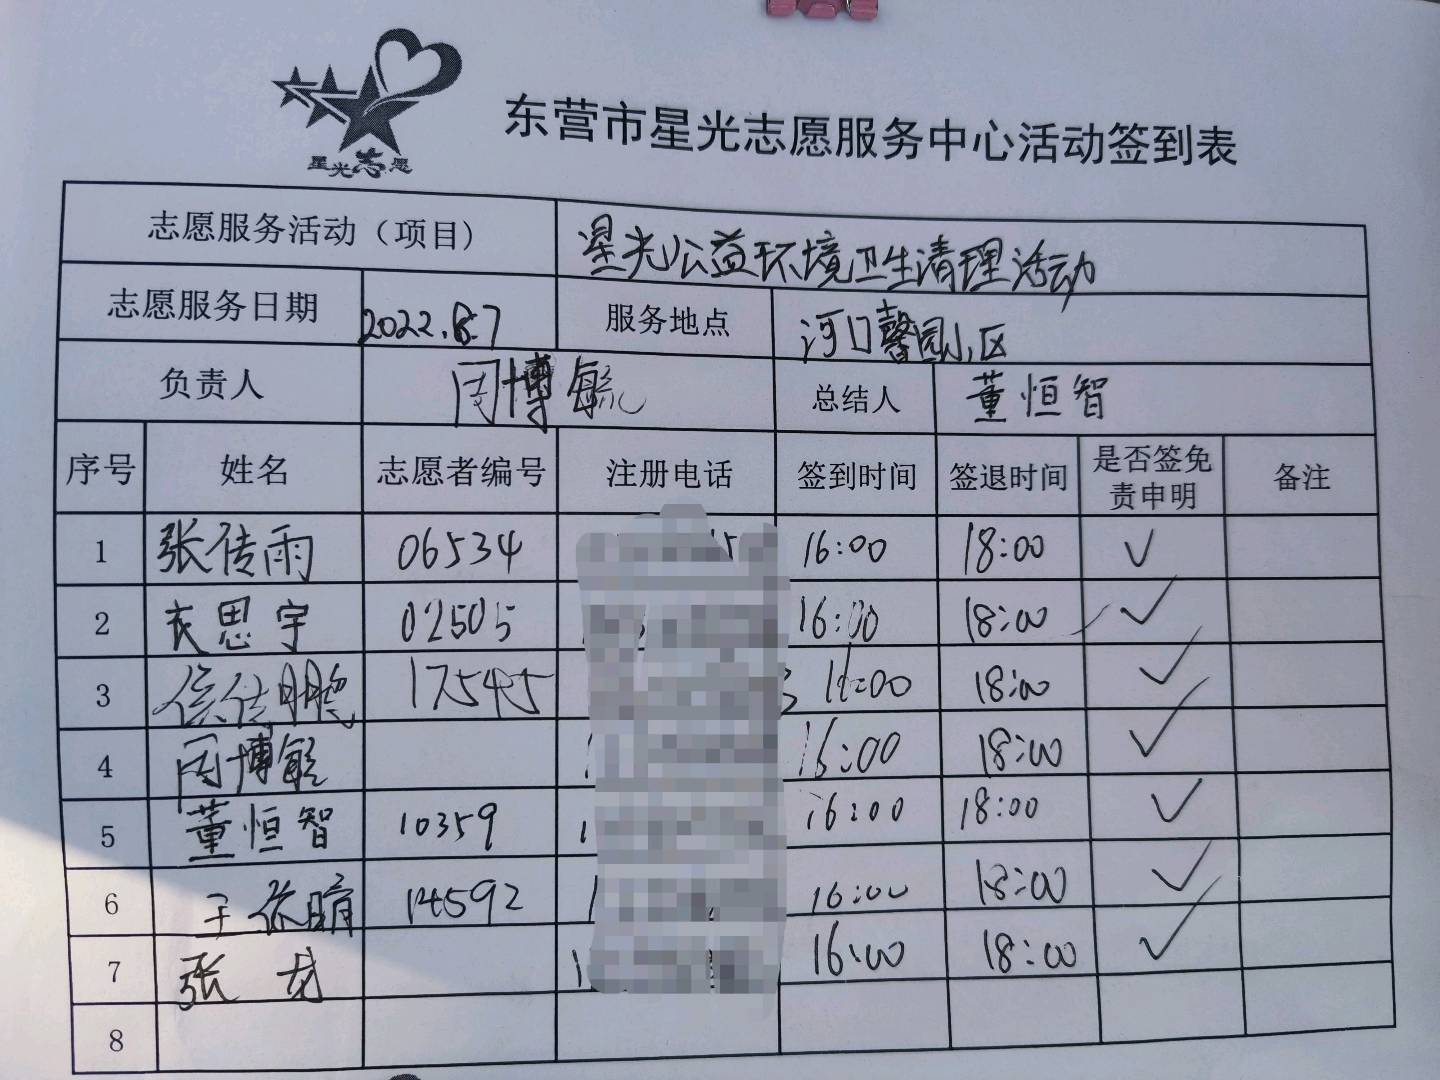 星光志愿
东营市星光志愿服务中心活动签到表
志愿服务活动（项目） 星光公益环境卫生清理活动
志愿服务日期 2022.8.7 服务地点 河口馨园小区
负责人 周博毓 总结人 董恒智
序号 姓名 志愿者编号 注册电话 签到时间 签退时间 是否签免责申明 备注
1 张传雨 06534 16:00 18:00 ✓
2 袁思宇 02505 16:00 18:00 ✓
3 17545 16:00 18:00 ✓
4 周博毓 16:00 18:00 ✓
5 董恒智 10359 16:00 18:00 ✓
6 14592 16:00 18:00 ✓
7 张龙 16:00 18:00 ✓
8